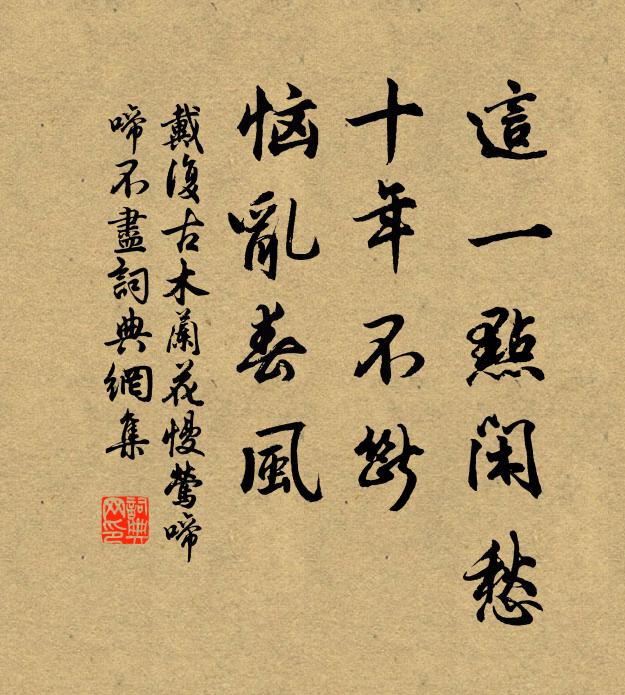 這一點閑愁
十年不斷
惱亂春風
戴復古木蘭花慢鶯啼
啼不盡詞典網集
詞典
网印